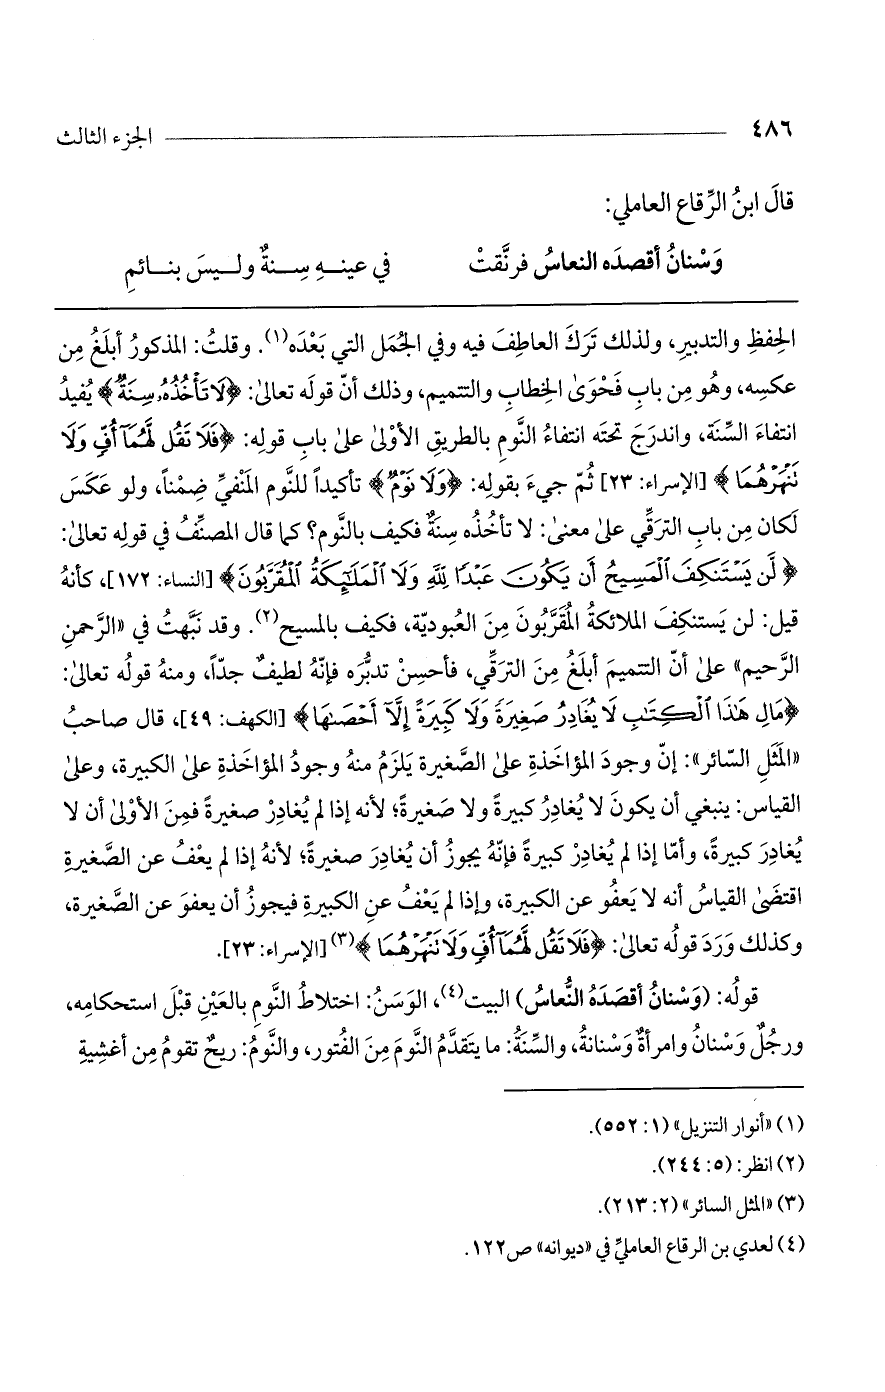 ٤٨٦ الجزء الثالث
قالَ ابنُ الرِّقاع العاملي:
وَسْنانُ أقصدَه النعاسُ فرنَّقتْ في عينـهِ سِـنةٌ ولـيسَ بنـائمِ
الحِفظِ والتدبيرِ، ولذلك تَرَكَ العاطِفَ فيه وفي الجُمَل التي بَعْدَه(١). وقلتُ: المذكورُ أبلَغُ مِن
عكسِه، وهُو مِن بابِ فَحْوَىٰ الخِطابِ والتتميمِ، وذلك أنّ قولَه تعالىٰ: ﴿لَا تَأْخُذُهُۥ سِنَةٌ﴾ يُفيدُ
انتفاءَ السِّنَة، واندرَجَ تحتَه انتفاءُ النَّومِ بالطريقِ الأَوْلىٰ علىٰ بابِ قولِه: ﴿فَلَا تَقُل لَّهُمَآ أُفٍّ وَلَا
نَنْهَرْهُمَا﴾ [الإسراء: ٢٣] ثُمّ جيءَ بقولِه: ﴿وَلَا نَوْمٌ﴾ تأكيداً للنَّومِ المَنْفيِّ ضِمْناً، ولو عَكَسَ
لَكان مِن بابِ الترَقِّي علىٰ معنىٰ: لا تأخُذُه سِنةٌ فكيف بالنَّوم؟ كما قال المصنِّفُ في قولِه تعالىٰ:
﴿لَّن يَسْتَنكِفَ ٱلْمَسِيحُ أَن يَكُونَ عَبْدًا لِّلَّهِ وَلَا ٱلْمَلَٰٓئِكَةُ ٱلْمُقَرَّبُونَ﴾ [النساء: ١٧٢]، كأنهُ
قيل: لن يَستنكِفَ الملائكةُ المُقَرَّبُونَ مِنَ العُبوديّة، فكيف بالمسيح(٢). وقد نَبَّهتُ في «الرَّحمنِ
الرَّحيم» علىٰ أنّ التتميمَ أبلَغُ مِنَ الترَقِّي، فأحسِنْ تدبُّرَه فإنّهُ لطيفٌ جدّاً، ومنهُ قولُه تعالىٰ:
﴿مَالِ هَٰذَا ٱلْكِتَٰبِ لَا يُغَادِرُ صَغِيرَةً وَلَا كَبِيرَةً إِلَّآ أَحْصَىٰهَا﴾ [الكهف: ٤٩]، قال صاحبُ
«المَثَلِ السّائر»: إنّ وجودَ المؤاخَذةِ علىٰ الصَّغيرة يَلزَمُ منهُ وجودُ المؤاخَذةِ علىٰ الكبيرة، وعلىٰ
القياس: ينبغي أن يكونَ لا يُغادِرُ كبيرةً ولا صَغيرةً؛ لأنه إذا لم يُغادِرْ صغيرةً فمِنَ الأَوْلىٰ أن لا
يُغادِرَ كبيرةً، وأمّا إذا لم يُغادِرْ كبيرةً فإنّهُ يجوزُ أن يُغادِرَ صغيرةً؛ لأنهُ إذا لم يعْفُ عن الصَّغيرةِ
اقتضَىٰ القياسُ أنه لا يَعفُو عن الكبيرة، وإذا لم يَعْفُ عنِ الكبيرةِ فيجوزُ أن يعفوَ عن الصَّغيرة،
وكذلك وَرَدَ قولُه تعالىٰ: ﴿فَلَا تَقُل لَّهُمَآ أُفٍّ وَلَا نَنْهَرْهُمَا﴾(٣) [الإسراء: ٢٣].
قولُه: (وَسْنانُ أقصَدَهُ النُّعاسُ) البيت(٤)، الوَسَنُ: اختلاطُ النَّومِ بالعَيْنِ قبْلَ استحكامِه،
ورجُلٌ وَسْنانُ وامرأةٌ وَسْنانةُ، والسِّنَةُ: ما يتَقدَّمُ النَّومَ مِنَ الفُتور، والنَّومُ: ريحٌ تقومُ مِن أغشِيةِ
(١) «أنوار التنزيل» (١: ٥٥٢).
(٢) انظر: (٥: ٢٤٤).
(٣) «المثل السائر» (٢: ٢١٣).
(٤) لعدي بن الرقاع العامليِّ في «ديوانه» ص١٢٢.